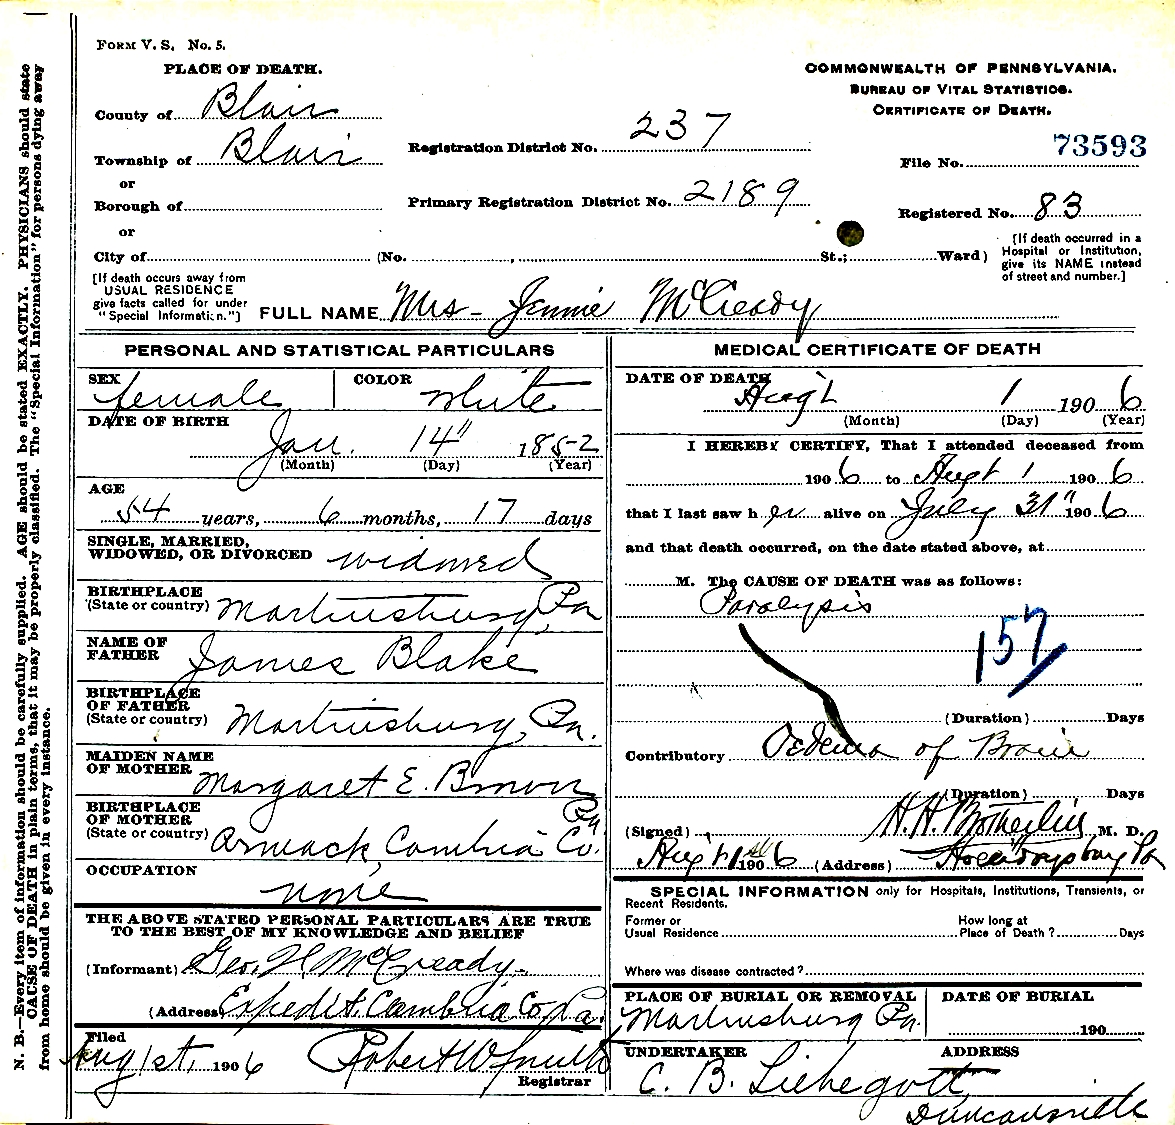 FORM V. S. No. 5.
PLACE OF DEATH.
County of Blair
Township of Blair
or
Borough of
or
City of (No. , St.; Ward)
[If death occurs away from
USUAL RESIDENCE
give facts called for under
"Special Information."]
Registration District No. 237
Primary Registration District No. 2189
COMMONWEALTH OF PENNSYLVANIA.
BUREAU OF VITAL STATISTICS.
CERTIFICATE OF DEATH.
File No. 73593
Registered No. 83
[If death occurred in a
Hospital or Institution,
give its NAME instead
of street and number.]
FULL NAME Mrs - Jennie McCready
PERSONAL AND STATISTICAL PARTICULARS
SEX female COLOR white
DATE OF BIRTH
Jan. 14" 1852
(Month) (Day) (Year)
AGE
54 years, 6 months, 17 days
SINGLE, MARRIED,
WIDOWED, OR DIVORCED widowed
BIRTHPLACE
(State or country) Martinsburg, Pa
NAME OF
FATHER James Blake
BIRTHPLACE
OF FATHER
(State or country) Martinsburg, Pa.
MAIDEN NAME
OF MOTHER Margaret E. Brown
BIRTHPLACE
OF MOTHER
(State or country) Cambria Co. Pa
OCCUPATION
none
THE ABOVE STATED PERSONAL PARTICULARS ARE TRUE
TO THE BEST OF MY KNOWLEDGE AND BELIEF
(Informant) Geo. H. McCready
(Address) Expedit, Cambria Co, Pa.
Filed
Aug 1st, 1906 Robert W Smith
Registrar
MEDICAL CERTIFICATE OF DEATH
DATE OF DEATH
Augt 1 1906
(Month) (Day) (Year)
I HEREBY CERTIFY, That I attended deceased from
1906 to Augt 1 1906
that I last saw her alive on July 31" 1906
and that death occurred, on the date stated above, at
M. The CAUSE OF DEATH was as follows:
Paralysis
157
(Duration) Days
Contributory Oedema of Brain
(Duration) Days
(Signed) H. H. Brotherlin M. D.
Augt 1st 1906 (Address) Hollidaysburg Pa
SPECIAL INFORMATION only for Hospitals, Institutions, Transients, or
Recent Residents.
Former or
Usual Residence
How long at
Place of Death? Days
Where was disease contracted?
PLACE OF BURIAL OR REMOVAL
Martinsburg Pa.
DATE OF BURIAL
190
UNDERTAKER
C. B. Liebegott
ADDRESS
Duncansville
N. B.—Every item of information should be carefully supplied. AGE should be stated EXACTLY. PHYSICIANS should state
CAUSE OF DEATH in plain terms, that it may be properly classified. The "Special Information" for persons dying away
from home should be given in every instance.